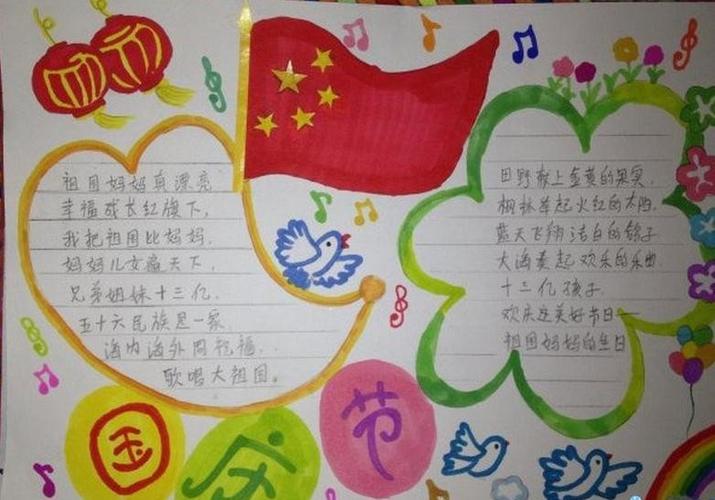 祖国妈妈真漂亮
幸福成长红旗下,
我把祖国比妈妈.
妈妈儿女遍天下,
兄弟姐妹十三亿.
五十六民族是一家.
海内海外同祝福.
歌唱大祖国。
田野献上金黄的果实.
枫林举起火红的太阳.
蓝天飞翔洁白的鸽子
大海奏起欢乐的乐曲.
十三亿孩子
欢庆这美好节日—
祖国妈妈的生日
国庆节